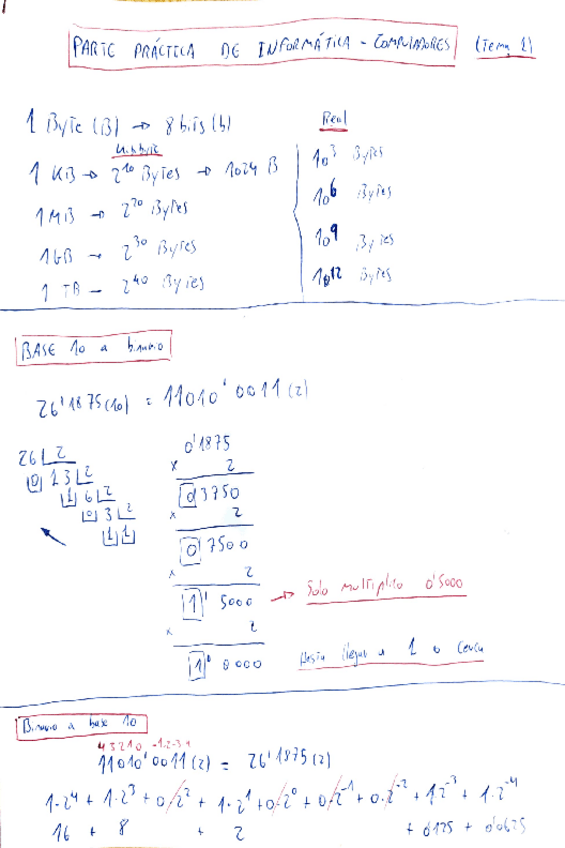 PARTE PRÁCTICA DE INFORMÁTICA - COMPUTADORES (Tema 1)
1 Byte (B) → 8 bits (b)
Real
1 KB → 2^10 Bytes → 1024 B
10^3 Bytes
1 MB → 2^20 Bytes
10^6 Bytes
1 GB → 2^30 Bytes
10^9 Bytes
1 TB - 2^40 Bytes
10^12 Bytes
BASE 10 a binario
26'1875 (10) = 11010'0011 (2)
26 2
0 13 2
1 6 2
0 3 2
1 1
0'1875
x 2
0 3750
x 2
0 7500
x 2
1' 5000 → Solo multiplico 0'5000
x 2
1' 0000 Hasta llegar a 1 o cerca
Binario a base 10
4 3 2 1 0 -1-2-3-4
11010'0011 (2) = 26'1875 (2)
1·2^4 + 1·2^3 + 0·2^2 + 1·2^1 + 0·2^0 + 0·2^-1 + 0·2^-2 + 1·2^-3 + 1·2^-4
16 + 8 + 2 + 0'125 + 0'0625